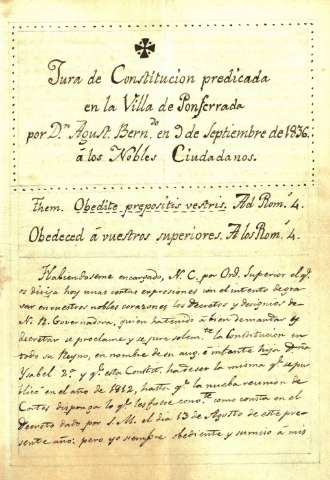 Jura de Constitucion predicada
en la Villa de Ponferrada
por Dn. Agust. Bern.do en 9 de Septiembre de 1836.
á los Nobles Ciudadanos.
Them. Obedite prepositis vestris. Ad Rom.s 4.
Obedeced á vuestros superiores. A los Rom.s 4.
Habiendoseme encargado, N. C. por Ord. Superior el qe.
os dirija hoy unas cortas expresiones con el intento de gra-
sar en vuestros nobles corazones los decretos y designios de
N. R. Governadora, quien ha tenido á bien demandar y
decretar se proclame y se jure solem.te la Constitucion en
todo su Reyno, en nombre de su aug. é infante hija Dña
Ysabel 2ª y qe. esta Constit. ha de ser la misma qe. se pu-
blicó en el año de 1812, hasta qe. la nueba reunion de
Cortes disponga lo qe. les fuese conv.te como consta en el
Decreto dado por S. M. el dia 13 de Agosto de este pre-
sente año: pero yo siempre obediente y sumiso á mis